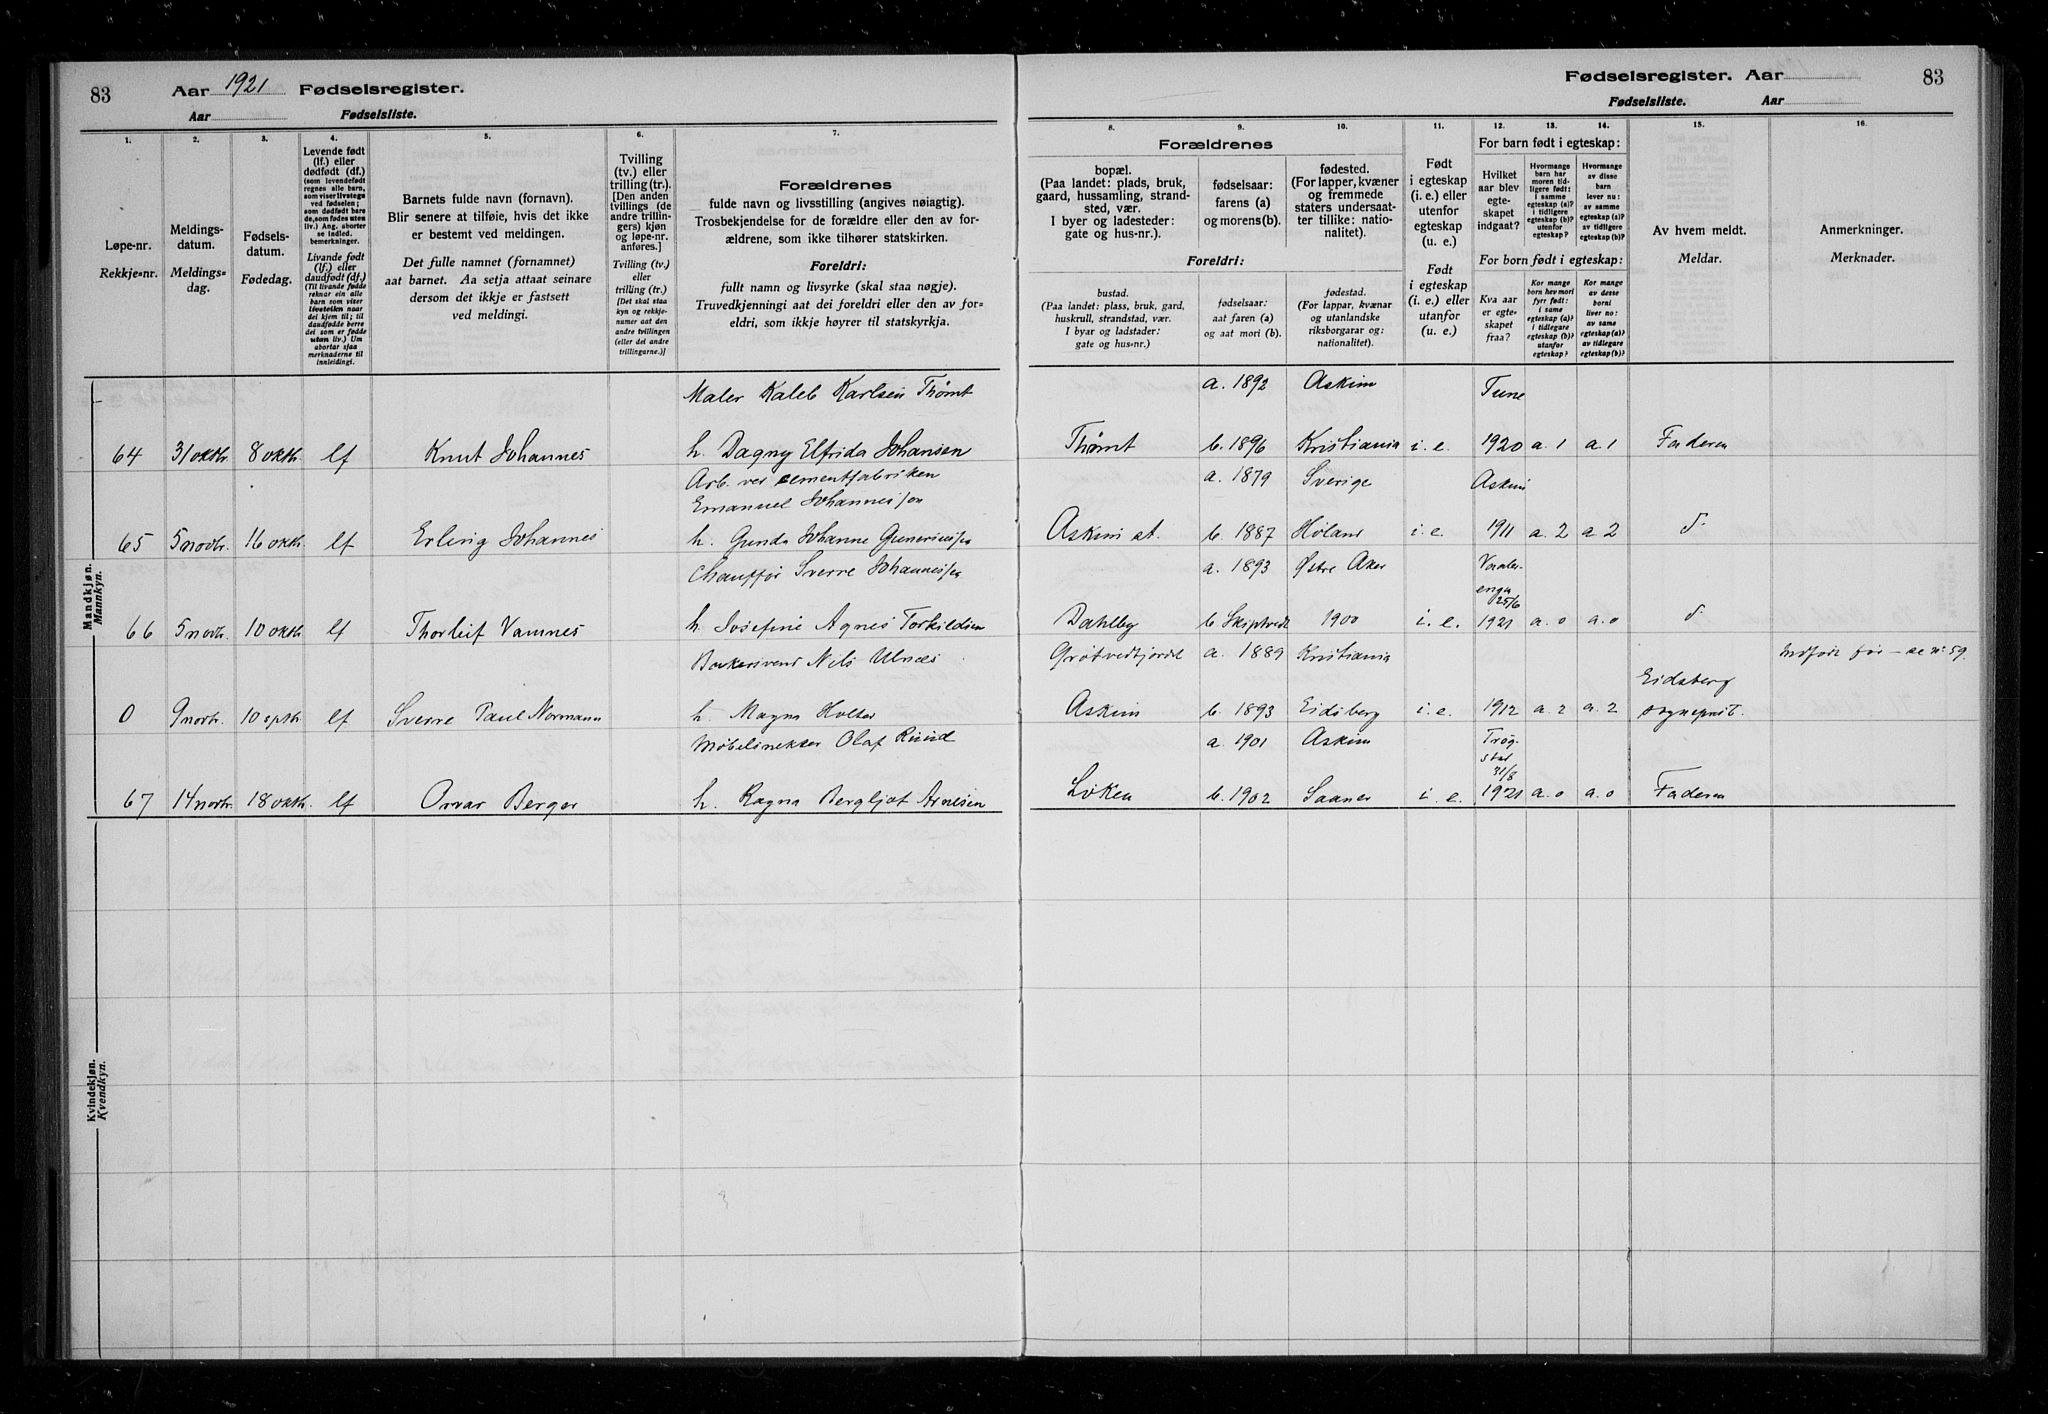 83
Aar 1921 Fødselsregister.
Aar Fødselsliste.
1.
2.
3.
4.
5.
6.
7.
Løpe-nr.
Rekkje-nr.
Meldings-
datum.
Meldings-
dag.
Fødsels-
datum.
Fødedag.
Levende født
(lf.) eller
dødfødt (df.)
(som levendefødt
regnes alle barn,
som viser livstegn
ved fødselen;
som dødfødt bare
de, som fødes uten
liv.) Ang. aborter
se indled.
bemerkninger.
Livande født
(lf.) eller
daudfødt (df.)
(Til livande fødde
reknar ein alle
barn som viser
livsteikn naar
dei kjem til; til
daudfødde berre
dei som er fødde
utan liv.) Um
abortar sjaa
merknaderne til
innleidingi.
Barnets fulde navn (fornavn).
Blir senere at tilføie, hvis det ikke
er bestemt ved meldingen.
Det fulle namnet (fornamnet)
aat barnet. Aa setja attaat seinare
dersom det ikkje er fastsett
ved meldingi.
Tvilling
(tv.) eller
trilling (tr.).
[Den anden
tvillings (de
andre trillin-
gers) kjøn
og løpe-nr.
anføres.]
Tvilling (tv.)
eller
trilling (tr.)
[Det skal staa
kyn og rekkje-
numer aat den
andre tvillingen
(eller dei andre
trillingarne.)]
Forældrenes
fulde navn og livsstilling (angives nøiagtig).
Trosbekjendelse for de forældre eller den av for-
ældrene, som ikke tilhører statskirken.
Foreldri:
fullt namn og livsyrke (skal staa nøgje).
Truvedkjenningi aat dei foreldri eller den av for-
eldri, som ikkje høyrer til statskyrkja.
Mandkjøn.
Mannkyn.
Maler Kaleb Karlsen Thømt
64 31 oktbr. 8 oktb. lf Knut Johannes h. Dagny Elfrida Johansen
Arb. ved cementfabriken
Emanuel Johannessen
65 5 novbr. 16 oktb. lf Erling Johannes h. Gunda Johanne Gunerius/en
Chauffør Sverre Johannes/en
66 5 novbr. 10 oktb. lf Thorleif Vamnes h. Josefine Agnes Torkildsen
Bakersvend Nils Ulnæs
0 9 novbr. 10 sptb. lf Sverre Paul Normann h. Magna Holter
Møbelsnekker Olaf Ruud
67 14 novbr. 18 oktb. lf Orvar Berger h. Ragna Bergljot Arnesen
Kvindekjøn.
Kvendkyn.
Fødselsregister. Aar
83
Fødselsliste. Aar
8.
9.
10.
11.
12.
13.
14.
15.
16.
Forældrenes
bopæl.
(Paa landet: plads, bruk,
gaard, hussamling, strand-
sted, vær.
I byer og ladesteder:
gate og hus-nr.).
fødselsaar:
farens (a)
og morens (b).
fødested.
(For lapper, kvæner
og fremmede
staters undersaat-
ter tillike: natio-
nalitet.).
Foreldri:
bustad.
(Paa landet: plass, bruk, gard,
huskrull, strandstad, vær.
I byar og ladstader:
gate og hus-nr.)
fødselsaar:
aat faren (a)
og aat mori (b).
fødestad.
(For lappar, kvænar
og utanlandske
riksborgarar og:
nationalitet).
Født
i egteskap
(i. e.) eller
utenfor
egteskap
(u. e.)
Født
i egteskap
(i. e.) eller
utanfor
(u. e.)
For barn født i egteskap:
Hvilket
aar blev
egte-
skapet
indgaat?
Hvormange
barn har
moren tid-
ligere født:
i samme
egteskap (a)?
i tidligere
egteskap (b)?
utenfor
egteskap?
Hvormange
av disse
barn
lever nu:
av samme
egteskap (a)?
av tidligere
egteskap (b)?
For born født i egteskap:
Kva aar
er egte-
skapet
fraa?
Kor mange
born hev mori
fyrr født:
i same
egteskap (a)?
i tidlegare
egteskap (b)?
utanfor
egteskap?
Kor mange
av desse
borni
liver no:
av same
egteskap (a)?
av tidlegare
egteskap (b)?
Av hvem meldt.
Meldar.
Anmerkninger.
Merknader.
a. 1892 Askim Tune
Thømt b. 1896 Kristiania i. e. 1920 a. 1 a. 1 Faderen
a. 1879 Sverige Askim
Askim st. b. 1887 Høland i. e. 1911 a. 2 a 2 d.
a. 1893 Østre Aker Vaaler-
enga
25/6
Dahlby b. Skiptvedt 1900 i. e. 1921 a. 0 a. 0 d
Grøtvedtjordet a. 1889 Kristiania Indført før – se nr. 59.
Eidsberg
Askim b. 1893 Eidsberg i. e. 1912 a. 2 a. 2 sogneprst.
a. 1901 Askim Trøg-
stad
31/8
Løken b. 1902 Saaner i. e. 1921 a. 0 a. 0 Faderen